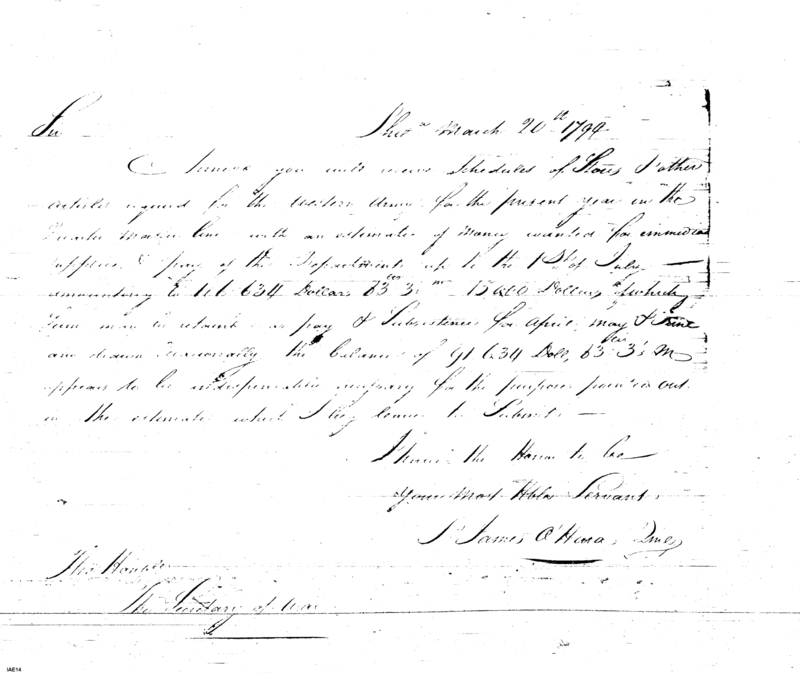 Sir
Phila March 20th 1794
Annexed you will receive Schedules of Stores & other
articles required for the Western Army for the present year in the
Quarter Master line with an estimate of Money wanted for immediate
supplies & pay of the Department up to the 1st of July —
amounting to 106.634 Dollars 83 cts 3 ms 15000 Dollars of which
Sum may be retained as pay & Subsistence for April, May & June
and drawn Seasonally the balance of 91.634 Dolls, 83 cts 3 Ms
appears to be indispensably necessary for the purposes pointed out
in the estimate which I beg leave to Submit —
I have the Honor to be
Your Most Hble Servant
James O'Hara QMG
The Honble
The Secretary of War
IAE14